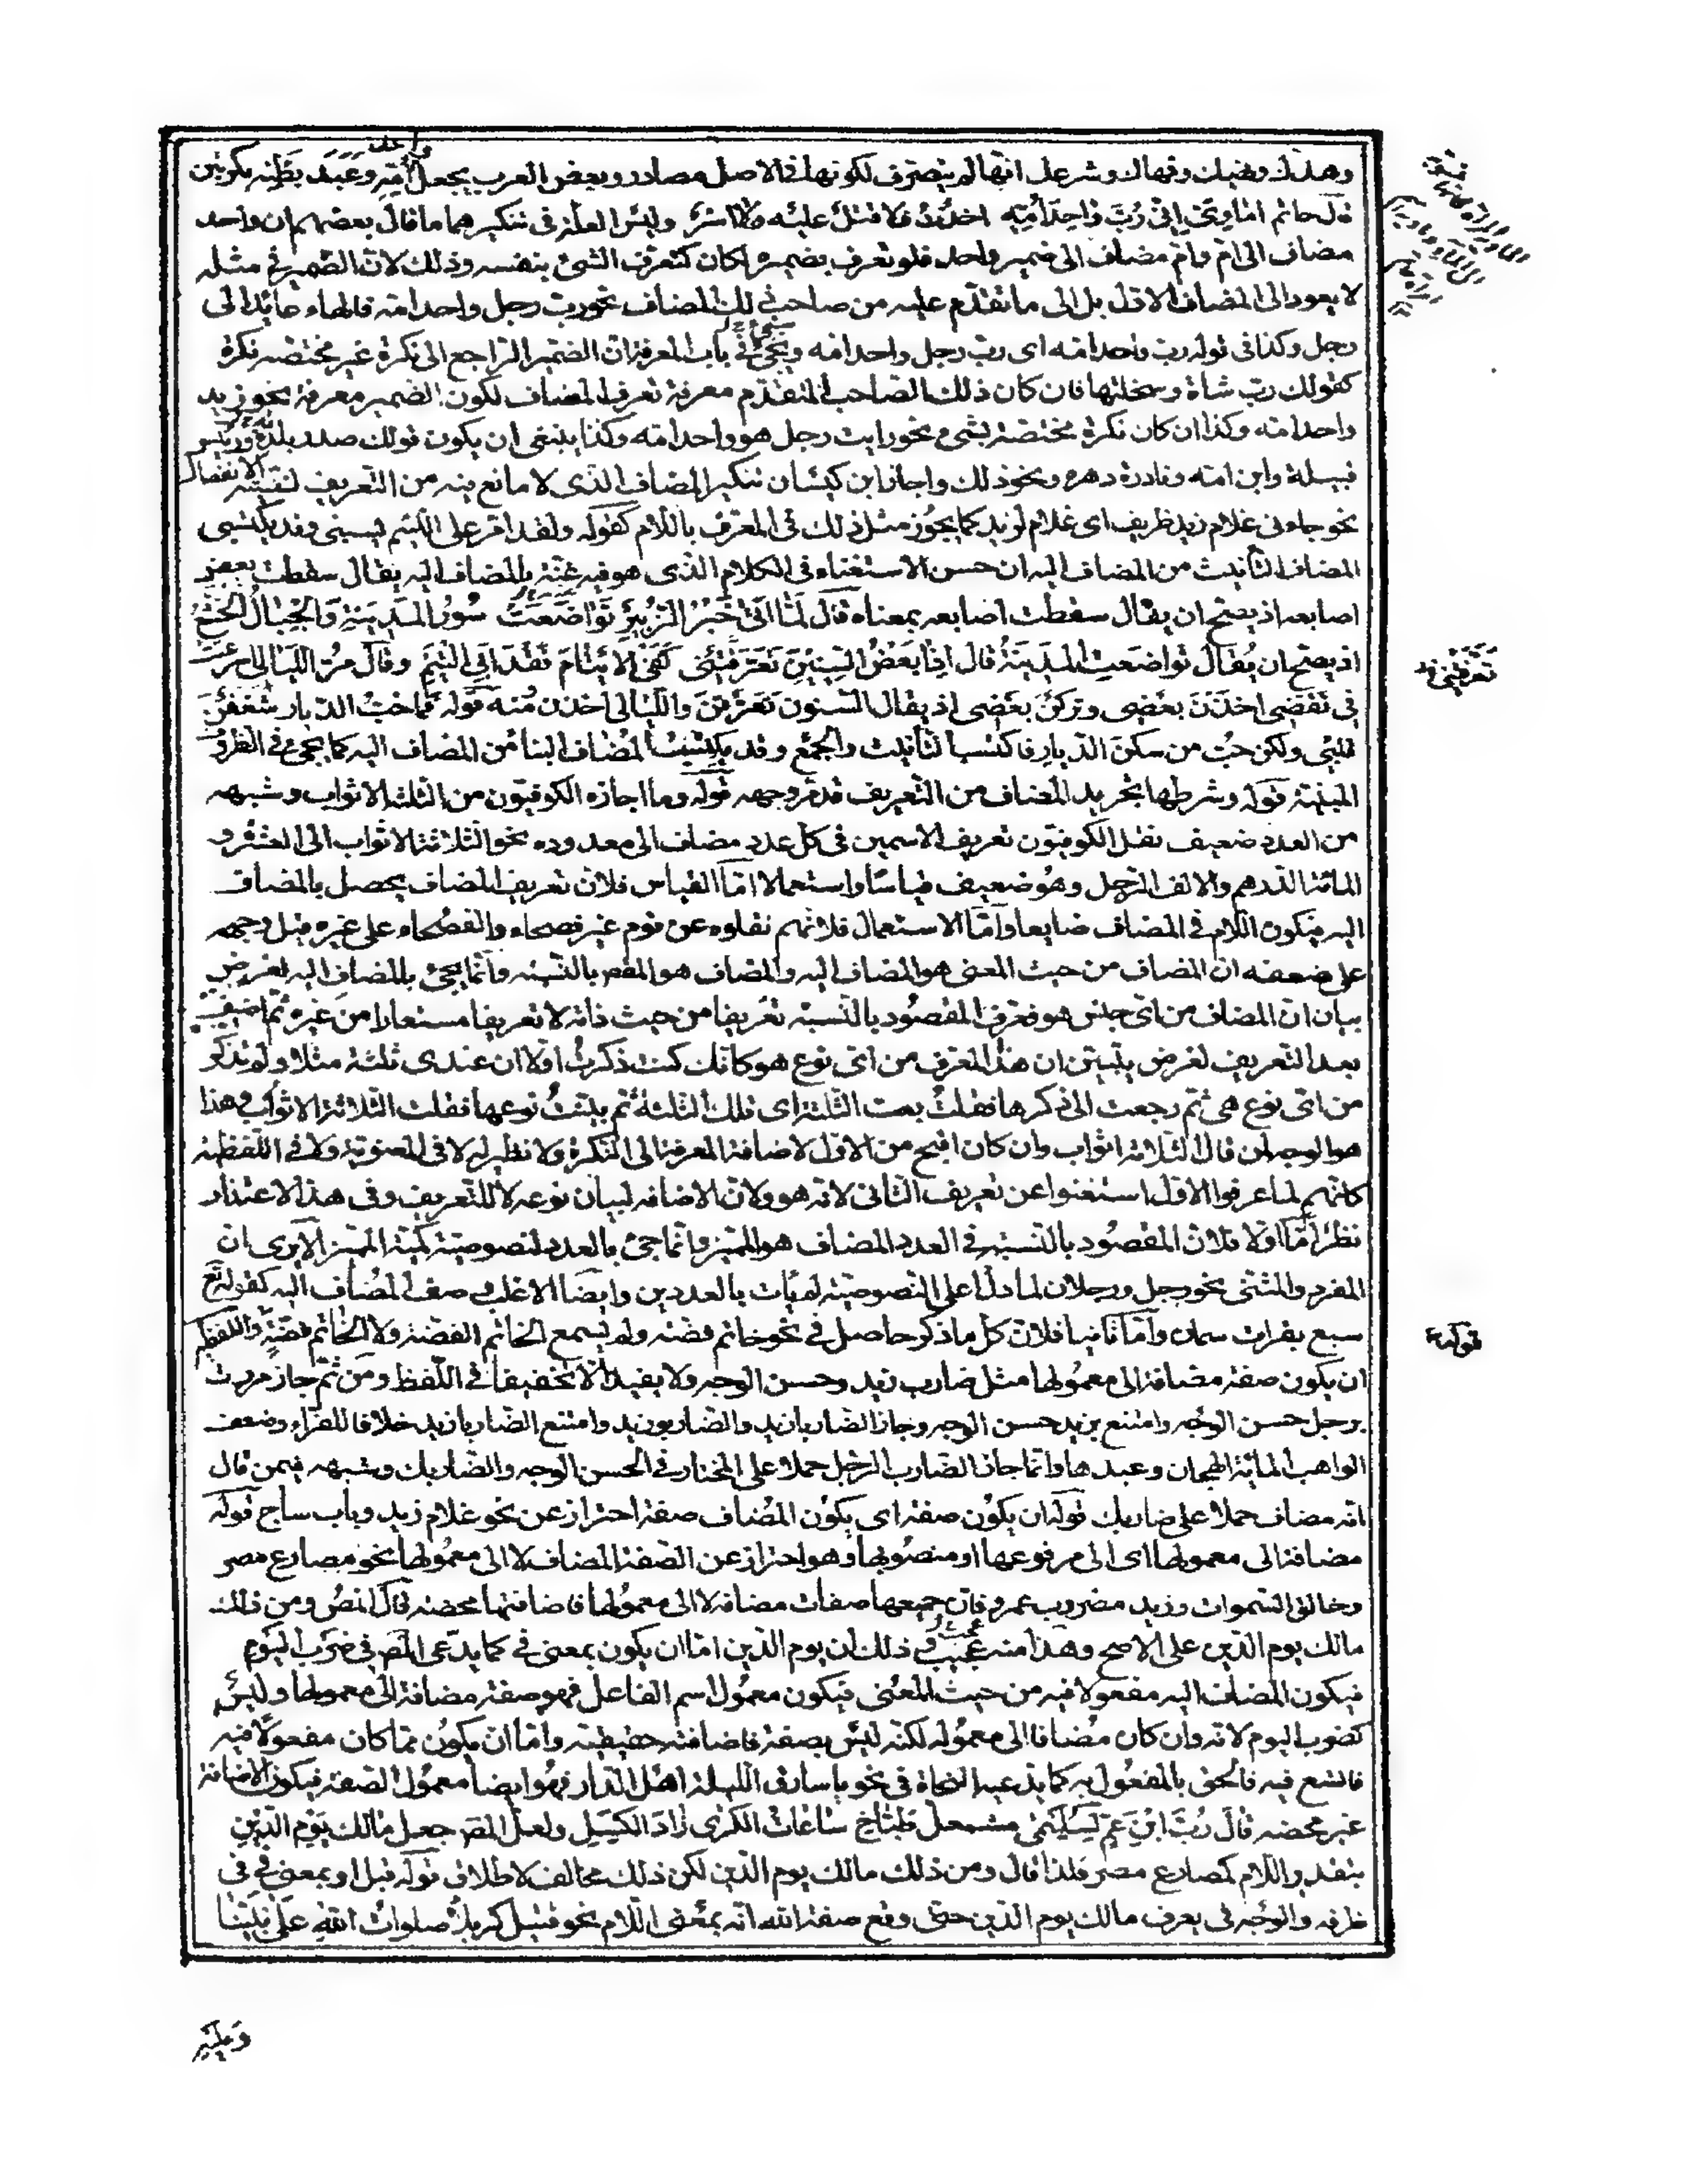 وهدك وضبك وقهاك وشرعك انها لم يتصرف لكونها فى الاصل مصادر وبعض العرب يجعل واحد امّه وعبد بطنه نكرتين
قال حاتم اماوىّ انى رُبَّ واحِدِ اُمّه اخذتُ فلا قتل عليه ولا اسر وليس العلة فى تنكيرهما ما قال بعضهم ان واحد
مضاف الى ام وام مضاف الى ضمير واحد فلو تعرف بضميره لكان كتعرف الشئ بنفسه وذلك لان الضمير فى مثله
لا يعود الى المضاف الاول بل الى ما تقدّم عليه من صاحب ذلك المضاف نحو رب رجل واحد امه فالهاء عائد الى
رجل وكذا فى قوله رب واحد امه اى رب رجل واحد امه ويجئ فى باب المعرفة ان الضمير الراجع الى نكرة غير مختصة نكرة
كقولك ربّ شاة وسخلتها فان كان ذلك الصاحب المتقدّم معرفة تعرف المضاف لكون الضمير معرفة نحو زيد
واحد امه وكذا ان كان نكرة مختصة بشئ نحو رايت رجل هو واحد امه وكذا ينبغى ان يكون قولك صدر بلده ورئيس
قبيلة وابن امه ونادرة دهره ونحو ذلك واجاز ابن كيسان تنكير المضاف الذى لا مانع فيه من التعريف لنية الانفصال
نحو جاءنى غلام زيد ظريف اى غلام لزيد كما يجوز مثل ذلك فى المعرف باللام كقوله ولقد امر على اللئيم يسبنى وقد يكتسى
المضاف التأنيث من المضاف اليه ان حسن الاستغناء فى الكلام الذى هو فيه عنه بالمضاف اليه يقال سقطت بعض
اصابعه اذ يصح ان يقال سقطت اصابعه بمعناه قال لَمّا اتى خَبَرُ الزُبيرِ تَواضَعَتْ سُورُ المدينةِ والجِبالُ الخُشَّعُ
اذ يصح ان يُقال تواضعت المدينةُ قال اذا بَعْضُ السِنِينَ تَعَرَّقَتْنى كَفَى الايتامَ فَقْدَ ابى اليَتيم وقال مرّ الليالى اسرعت
فى نَقضى اخذن بعضى وتركن بعضى اذ يقال السنون تعرّقن والليالى اخذن ومنه قوله فما حبّ الديار شغفن
قلبى ولكن حبّ من سكن الديار فاكتسب التأنيث والجمع وقد يكتسب المضاف البناء من المضاف اليه كما يجئ فى الظروف
المبنية قوله وشرطها تجريد المضاف من التعريف قد مرّ وجهه قوله وما اجازه الكوفيون من الثلثة الاثواب وشبهه
من العدد ضعيف نقل الكوفيون تعريف الاسمين فى كل عدد مضاف الى معدوده نحو الثلاثة الاثواب الى العشرة و
المائة الدرهم والالف الرجل وهو ضعيف قياسا واستعمالا اما القياس فلان تعريف المضاف يحصل بالمضاف
اليه فيكون اللام فى المضاف ضايعا واما الاستعمال فلانهم نقلوه عن قوم غير فصحاء والفصحاء على غيره قيل وجهه
على ضعفه ان المضاف من حيث المعنى هو المضاف اليه والمضاف هو المقصود بالنسبة وانما يجئ بالمضاف اليه لغرض
بيان ان المضاف من اى جنس هو فعرف المقصود بالنسبة تعريفا من حيث ذاته لا تعريفا مستعارا من غيره ثم اضيف
بعد التعريف لغرض يتبين ان هذا المعرف من اى نوع هو كانك كنت ذكرت اولا ان عندى ثلثة مثلا ولم تذكر
من اى نوع هى ثم رجعت الى ذكرها فقلت بعت الثلثة اى تلك الثلثة ثم بينت نوعها فقلت الثلاثة الاثواب وهذا
هو الوجه لمن قال الثلاثة اثواب وان كان اقبح من الاول لاضافة المعرفة الى النكرة ولا نظير له لا فى المعنوية ولا فى اللفظية
كانهم لما عرفوا الاول استغنوا عن تعريف الثانى لانه هو ولان الاضافة لبيان نوعه لا للتعريف وفى هذا الاعتذار
نظر اما اولا فلان المقصود بالنسبة فى العدد المضاف هو المميز وانما جئ بالعدد لنصوصية كمية المميز الا يرى ان
المفرد والمثنى نحو رجل ورجلان لما دلا على النصوصية لم يأت بالعددين وايضا الاغلب وصف المضاف اليه كقوله تع
سبع بقرات سمان واما ثانيا فلان كل ما ذكر حاصل فى نحو خاتم فضة ولم يسمع الخاتم الفضة ولا الخاتم فضة واللفظية
ان يكون صفة مضافة الى معمولها مثل ضارب زيد وحسن الوجه ولا يفيد الا تخفيفا فى اللفظ ومن ثمّ جاز مررت
برجل حسن الوجه وامتنع بزيد حسن الوجه وجاز الضاربا زيد والضاربو زيد وامتنع الضارب زيد خلافا للفراء وضعف
الواهب المائة الهجان وعبدها وانما جاز الضارب الرجل حملا على المختار فى الحسن الوجه والضاربك وشبهه فيمن قال
انه مضاف حملا على ضاربك قوله ان يكون صفة اى يكون المضاف صفة احتراز عن نحو غلام زيد وباب ساج قوله
مضافة الى معمولها اى الى مرفوعها او منصوبها وهو احتراز عن الصفة المضاف لا الى معمولها نحو مصارع مصر
وخالق السموات وزيد مضروب عمرو فان جميعها صفات مضافة لا الى معمولها فاضافتها محضة قال المص ومن ذلك
مالك يوم الدين على الاصح وهذا منه عجيب وذلك لان يوم الدين اما ان يكون بمعنى فى كما يدّعى المص فى ضرب اليوم
فيكون المضاف اليه مفعولا فيه من حيث المعنى فيكون معمول اسم الفاعل فهو صفة مضافة الى معمولها وليس
كضرب اليوم لانه وان كان مضافا الى معموله لكنه ليس بصفة فاضافته حقيقية واما ان يكون مما كان مفعولا فيه
فاتسع فيه فالحق بالمفعول به كما يدعيه النحاة فى نحو يا سارق الليلة اهل الدار فهو ايضا معمول الصفة فيكون الاضافة
غير محضة قال رُبَّ ابْنِ عَمٍّ لِسُلَيْمى مشمعل طبّاخ ساعات الكرى زاد الكسل ولعل المص جعل مالك يوم الدين
بتقدير اللام كمصارع مصر فلذا قال ومن ذلك مالك يوم الدين لكن ذلك مخالف لاطلاق قوله قبل او بمعنى فى فى
ظرفه والوجه فى يعرف مالك يوم الدين حتى وقع صفة الله انه بمعنى اللام نحو قتيل كربلا صلوات الله على نبينا
تعرقتنى
قوله
وعليه